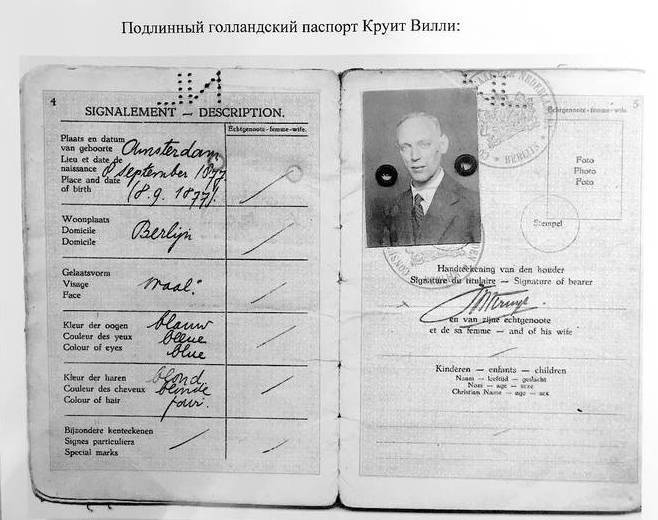 Подлинный голландский паспорт Круит Вилли:
4
SIGNALEMENT — DESCRIPTION.
Echtgenoote-femme-wife.
Plaats en datum
van geboorte
Lieu et date de
naissance
Place and date
of birth
Amsterdam
8 September 1877
(8.9.1877).
Woonplaats
Domicile
Domicile
Berlijn
Gelaatsvorm
Visage
Face
ovaal.
Kleur der oogen
Couleur des yeux
Colour of eyes
blauw
bleue
blue
Kleur der haren
Couleur des cheveux
Colour of hair
blond
blonde
fair.
Bijzondere kenteekenen
Signes particuliers
Special marks
5
Echtgenoote-femme-wife.
BERLIJN
Foto
Photo
Foto
Stempel
Handteekening van den houder
Signature du titulaire — Signature of bearer
en van zijne echtgenoote
et de sa femme — and of his wife
Kinderen — enfants — children
Naam — leeftijd — geslacht
Nom — age — sexe
Christian Name — age — sex